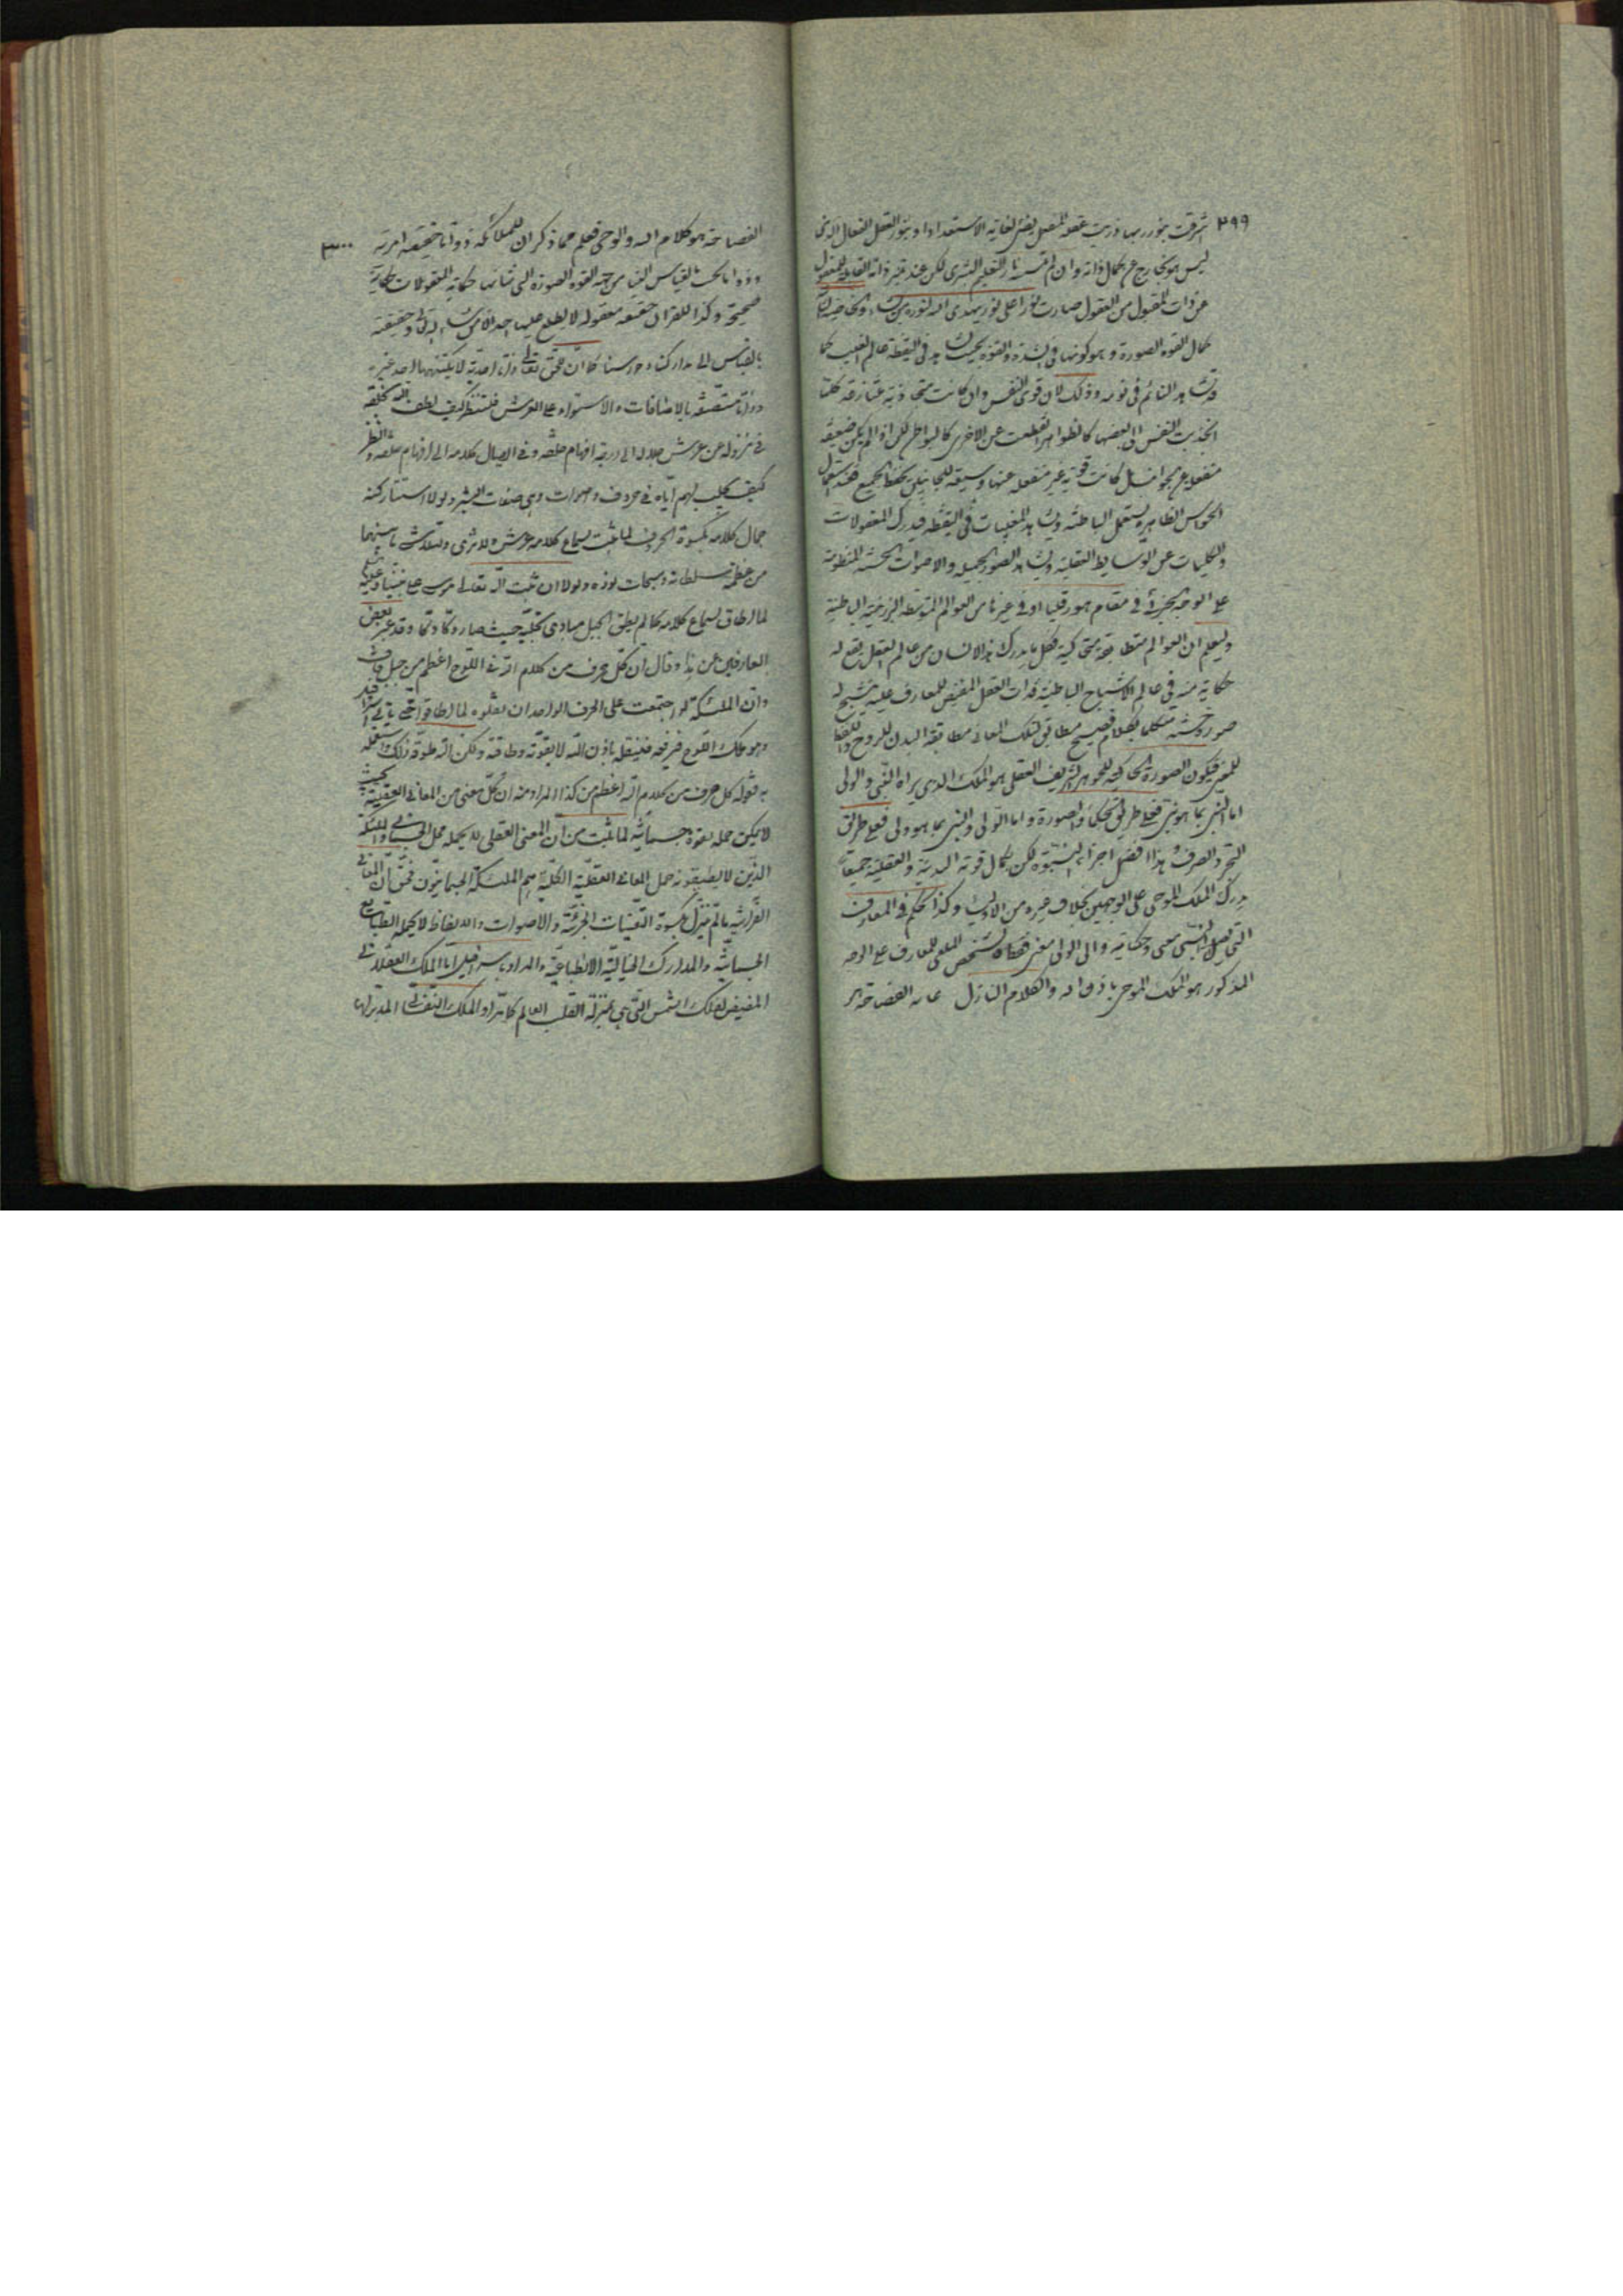 ٣٩٩
اشرقت بنور ربها وزيت عقله المنفعل يضئ لغاية الاستعداد او بنور العقل الفعال الذى
ليس هو بخارج عن كمال ذاته وان لم تمسسه نار التعليم البشرى لكن عند تميز ذاته القابلة للمعقول
عن ذات المقبول من العقول صارت نورا على نور يهدى الله لنوره من يشاء
كمال القوة المصورة وهو كونها فى الشدة والقوة بحيث يشاهد فى اليقظة عالم الغيب كما
يشاهد النائم فى نومه وذلك لان قوى النفس وان كانت متجاذبة متنازعة كلما
انجذبت النفس الى بعضها كالظواهر انقطعت عن الاخرى كالبواطن لكن اذا لم يكن ضعيفة
منفعلة عن الجوانب بل كانت قوية غير منفعلة عنها وسيعة للجانبين يحفظ الجميع فعند استعمال
الحواس الظاهرة يستعمل الباطنة ويشاهد المغيبات فى اليقظة فيدرك المعقولات
والكليات عن الوسايط العقلية ويشاهد الصور الجميلة والاصوات الحسنة المنظومة
على الوجه الجزئى فى مقام هورقليا او فى غيرها من العوالم المتوسطة البرزخية الباطنية
وليعلم ان العوالم متطابقة متحاكية فكل ما يدركه الانسان من عالم العقل يقع له
حكاية منه فى عالم الاشباح الباطنية فذات العقل المفيض للمعارف عليه يتشبح له
صورة حسنة متكلما بكلام فصيح مطابق لتلك المعانى مطابقة البدن للروح واللفظ
للمعنى فيكون الصورة المحاكية للجوهر الشريف العقلى هو الملك الذى يراه النبى والولى
اما النبى بما هو نبى فعلى طريق التحكى والصورة واما الولى والنبى بما هو ولى فعلى طريق
التجرد الصرف وهذا افضل اجزاء النبوة لكن لكمال قوته البدنية والعقلية جميعا
يدرك الملك الموحى على الوجهين بخلاف غيره من الاولياء وكذا الحكم فى المعارف
التى تصل الى النبى معنى وحكاية والى الولى معنى فقط فالشخص الملقى للمعارف على الوجه
المذكور هو الملك الموحى باذن الله والكلام النازل غاية الفصاحة هو
٣٠٠
الفصاحة هو كلام الله والوحى فعلم مما ذكر ان للملائكة ذوات حقيقية امرية
وذوات بالقياس الينا من جهة القوة المصورة التى شانها حكاية المعقولات حكاية
صحيحة وكذا للقران حقيقة معقولة لا يطلع عليها احد الا من شاء الله وحقيقة
بالقياس الى مداركنا وحواسنا كما ان للحق تعالى ذاتا احدية لا يكتنهها احد غيره
وذاتا متصفة بالاضافات والاستواء على العرش فلتنظر كيف لطف الله بخلقه
فى نزوله عن عرش جلاله الى درجة افهام خلقه وفى ايصال كلامه الى افهام خلقه وانظر
كيف تجلت لهم اياته فى حروف واصوات وهى صفات البشر ولولا استتار كنه
جمال كلامه بكسوة الحروف لما ثبت لسماع كلامه عرش ولا ثرى وتلاشت ما بينهما
من عظمة سلطانه وسبحات نوره ولولا ان ثبت الله تعالى موسى على نبينا وعليه
لما اطاق سماع كلامه كما لم يطق الجبل مبادى تجليه حيث صار دكا دكا وقد عبر بعض
العارفين عن هذا وقال ان كل حرف من كلام الله فى اللوح اعظم من جبل قاف
وان الملئكة لو اجتمعت على الحرف الواحد ان يقلوه لما اطاقوا حتى ياتى اسرافيل
وهو ملك اللوح فيرفعه فيقله باذن الله لا بقوته وطاقته ولكن الله طوقه ذلك واستعمله
به قوله كل حرف من كلام الله اعظم من كذا المراد منه ان كل معنى من المعانى العقلية بحيث
لا يمكن حمله بقوة جسمانية لما ثبت من ان المعنى العقلى لا يحمله محل الجسمانى والملئكة
الذين لا يطيقونه حمل المعانى العقلية الكلية هم الملئكة الجسمانيون فحق ان المعانى
القرانية ما لم تنزل بكسوة التعينات الجزئية والاصوات والالفاظ لا يحملها الطبايع
الجسمانية والمدارك الخيالية الانطباعية والمراد باسرافيل اما الملك العقلانى
المفيض لفلك الشمس التى هى بمنزلة القلب للعالم كله او الملك النفسانى المدبر لها